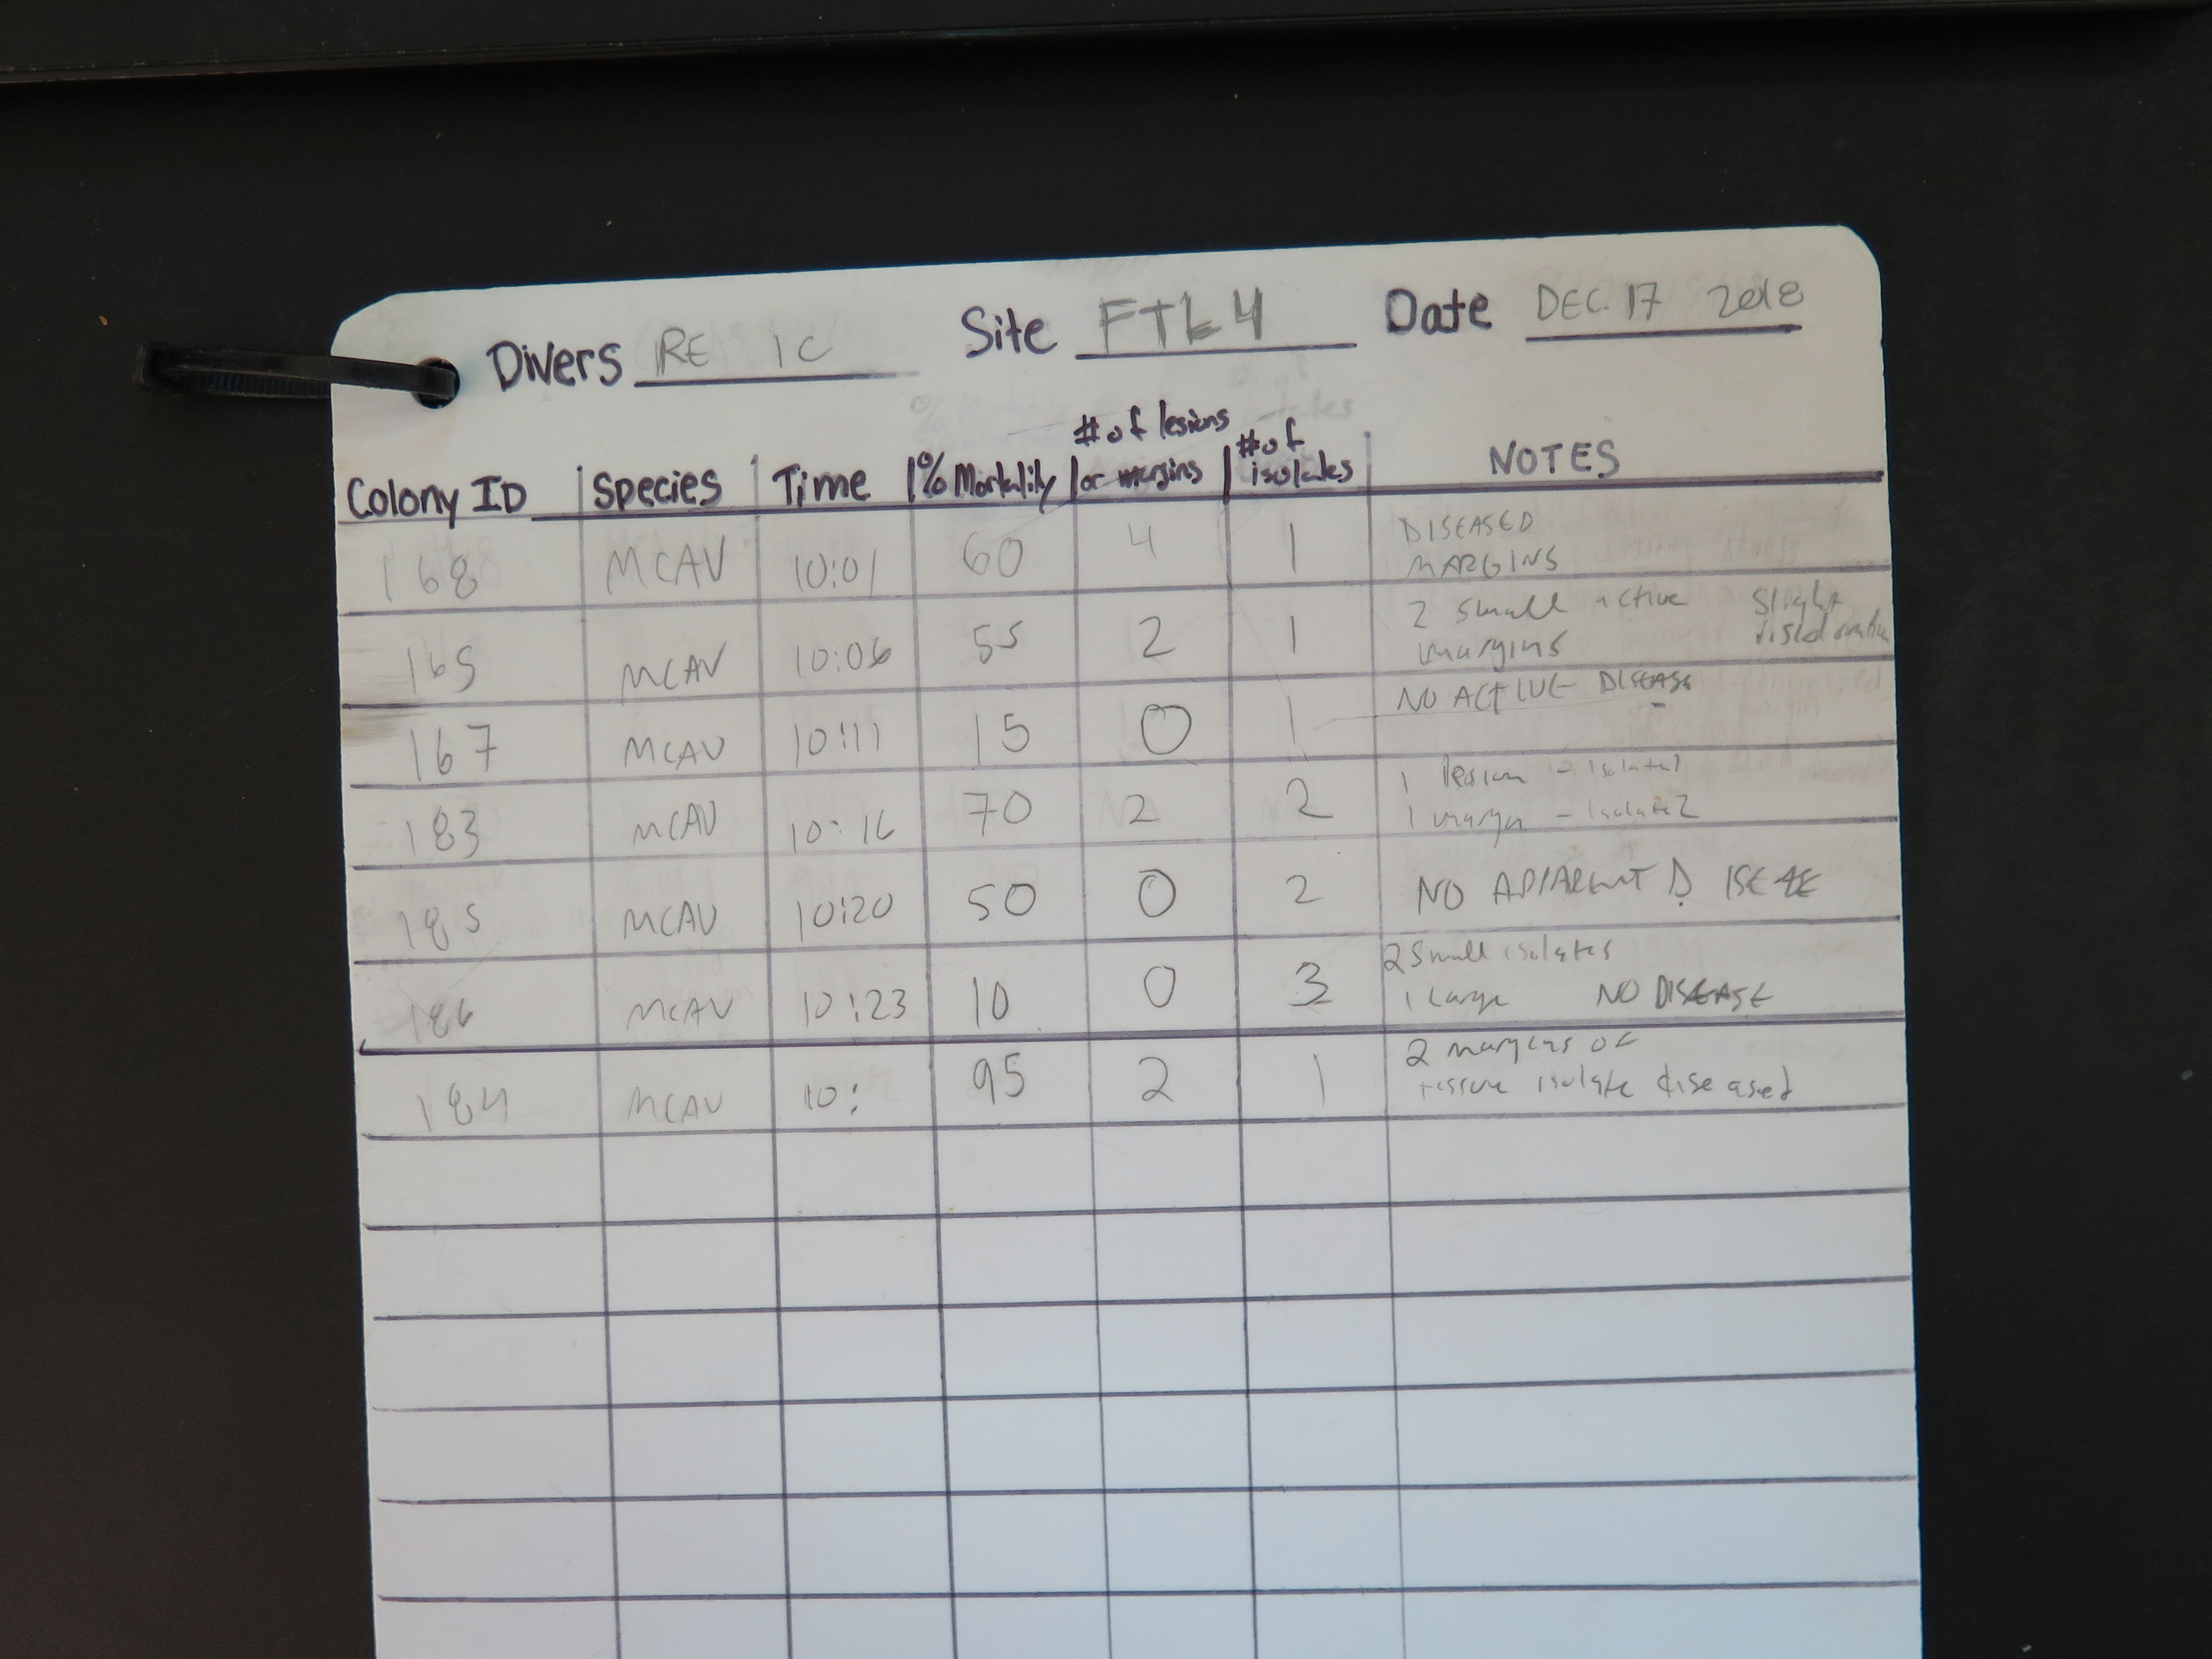 Divers RE IC Site FTL4 Date DEC. 17 2018
Colony ID Species Time % Mortality # of lesions or margins # of isolates NOTES
168 MCAV 10:01 60 4 1 DISEASED
MARGINS
165 MCAV 10:06 55 2 1 2 small active slight
margins
167 MCAV 10:11 15 0 1 NO ACTIVE DISEASE
183 MCAV 10:16 70 2 2 1 lesion - isolate 1
1 margin - isolate 2
185 MCAV 10:20 50 0 2 NO APPARENT DISEASE
186 MCAV 10:23 10 0 3 2 small isolates
1 large NO DISEASE
184 MCAV 10: 95 2 1 2 margins of
tissue isolate diseased